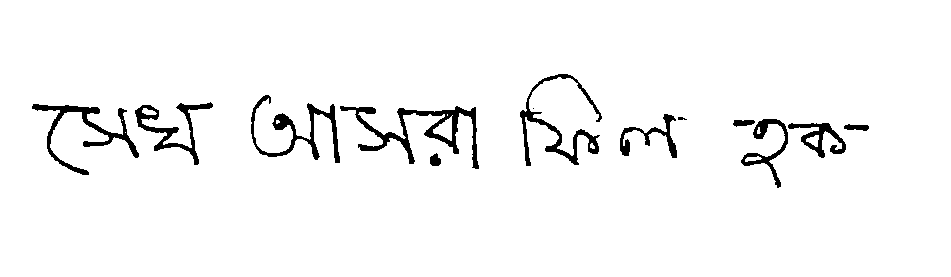 সেখ আসরা ফিল হক